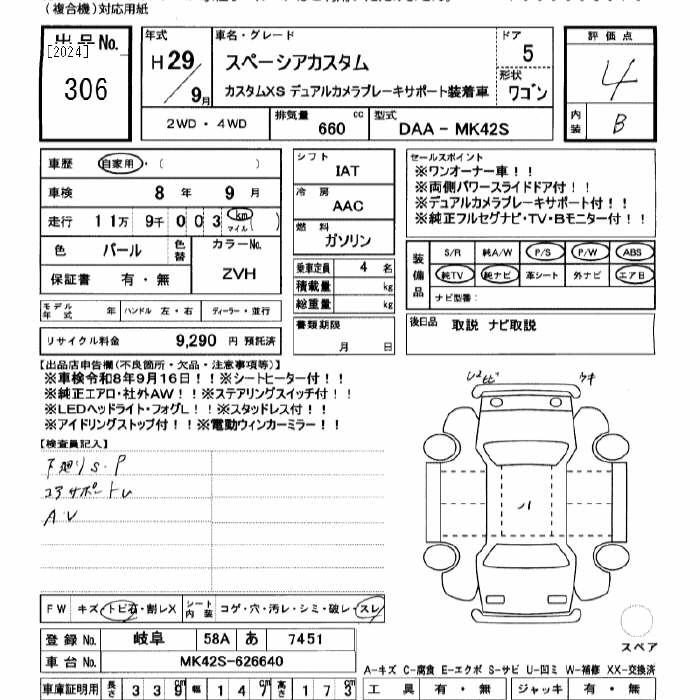 (複合機)対応用紙
出品No.
[2024]
306
年式
H 29
9月
車名・グレード
スペーシアカスタム
カスタムXS デュアルカメラブレーキサポート装着車
ドア
5
形状
ワゴン
評価点
4
内装
B
2WD・4WD
排気量
660
cc
型式
DAA - MK42S
車歴
自家用・( )
車検
8 年 9 月
走行
11万 9千 0 0 3 km マイル( )
色
パール
色替
カラーNo.
ZVH
保証書
有・無
シフト
IAT
冷房
AAC
燃料
ガソリン
乗車定員
4 名
積載量
kg
総重量
kg
書類期限
月 日
セールスポイント
※ワンオーナー車!!
※両側パワースライドドア付!!
※デュアルカメラブレーキサポート付!!
※純正フルセグナビ・TV・Bモニター付!!
装備品
S/R 純A/W P/S P/W ABS
純TV 純ナビ 革シート 外ナビ エアB
ナビ型番:
後日品
取説 ナビ取説
モデル年式 年 ハンドル 左・右 ディーラー・並行
リサイクル料金 9,290 円 預託済
【出品店申告欄(不良箇所・欠品・注意事項等)】
※車検令和8年9月16日!!※シートヒーター付!!
※純正エアロ・社外AW!!※ステアリングスイッチ付!!
※LEDヘッドライト・フォグL!!※スタッドレス付!!
※アイドリングストップ付!!※電動ウィンカーミラー!!
【検査員記入】
下廻りS.P
コアサポートU
AU
FW キズ・トビ石・割レX
シート内装 コゲ・穴・汚レ・シミ・破レ・スレ
登録No. 岐阜 58A あ 7451
車台No. MK42S-626640
車庫証明用 長さ 3 3 9 cm 幅 1 4 7 cm 高さ 1 7 3 cm
スペア
A-キズ C-腐食 E-エクボ S-サビ U-凹ミ W-補修 XX-交換済
工具 有・無 ジャッキ 有・無